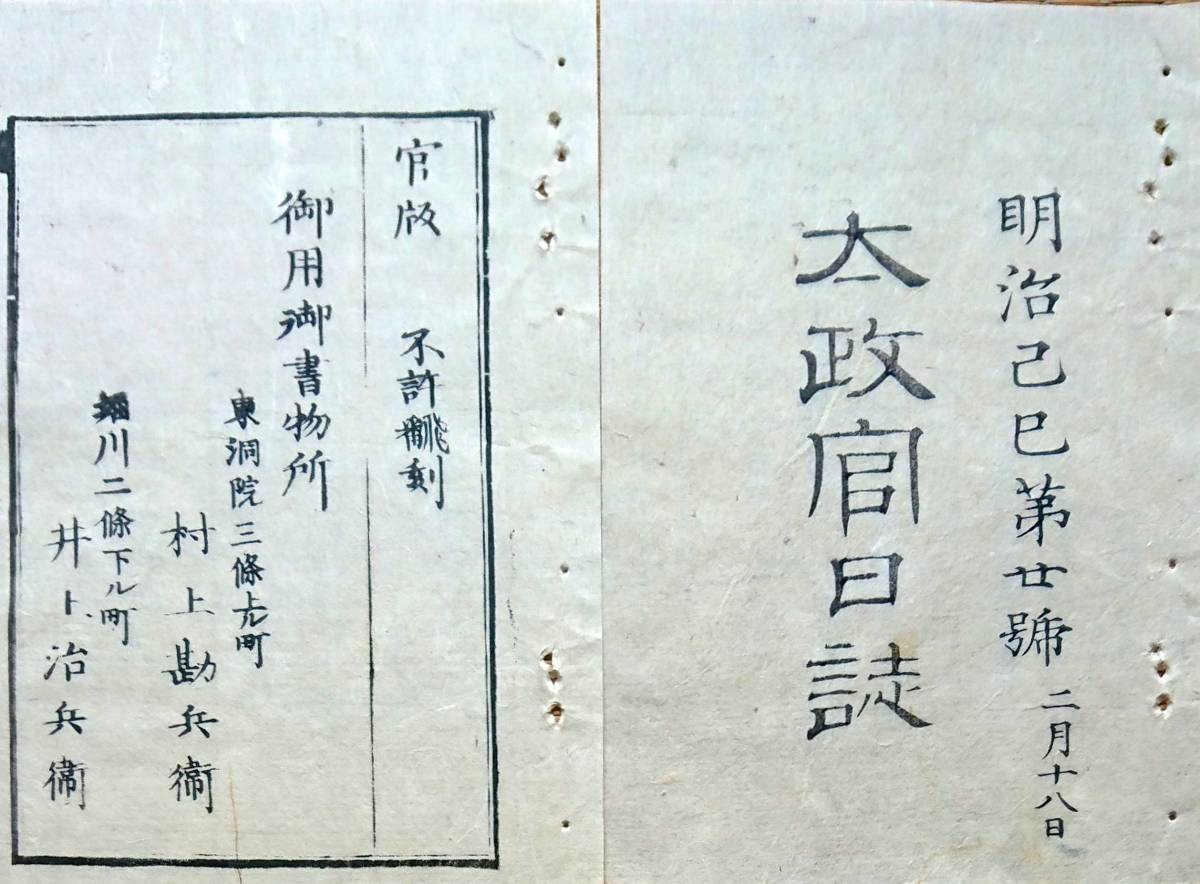 明治己巳第廿號 二月十八日
太政官日誌
官版 不許飜刻
御用御書物所
東洞院三條上ル町
村上勘兵衞
堀川二條下ル町
井上治兵衞